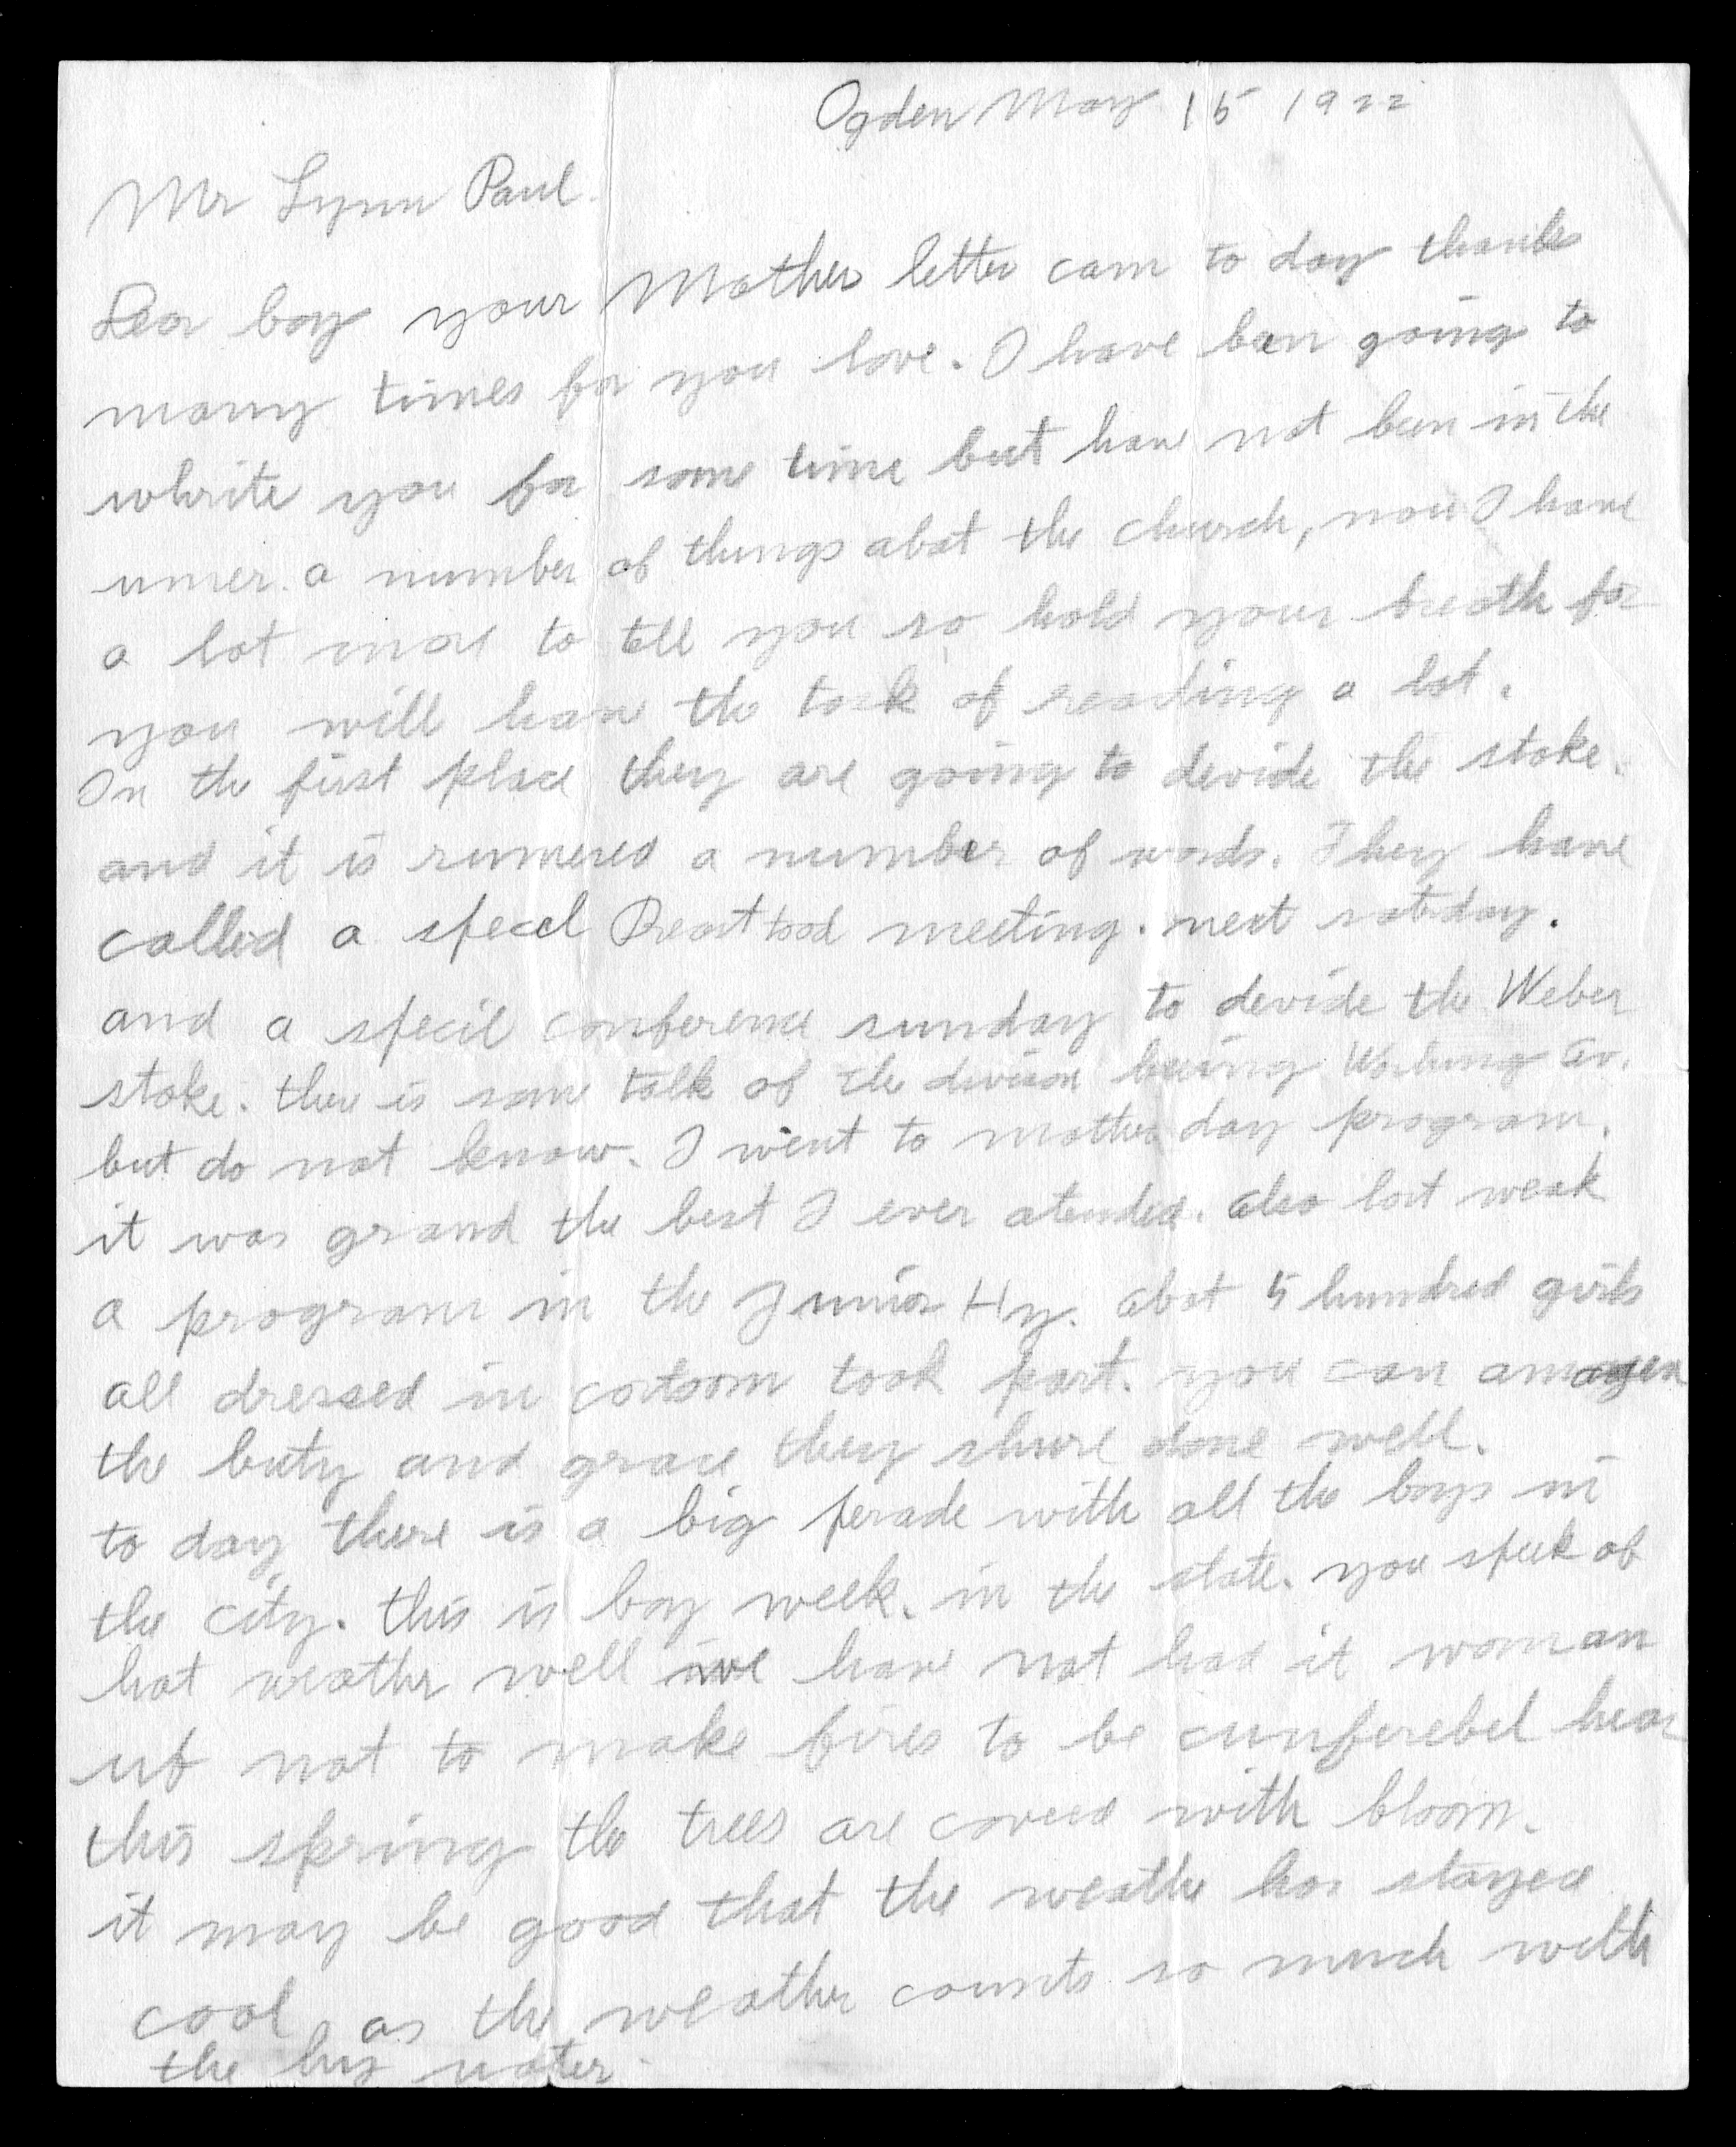 Ogden May 15 1922
Mr Lynn Paul.
Dear boy your Mothers letter cam to day thanks
many times for you love. I have ben going to
whrite you for some time but have not been in the
a number of things abot the church, now I have
a lot more to tell you so hold your breath for
you will have the task of reading a lot.
In the first place they are going to devide the stake.
and it is rumered a number of wards. They have
called a specel Preasthood meeting. next satsday.
and a specil conference sunday to devide the Weber
stake. there is some talk of the devision being Washing av.
but do not know. I went to mothers day program.
it was grand the best I ever atended. also last weak
a program in the Junior Hy. abot 5 hundred girls
all dressed in costoom took part. you can amagen
the buty and grace they shure done well.
to day there is a big perade with all the boys in
the city. this is boy week. in the state. you speek of
hot weather well we have not had it warm an
uf not to make fires to be cunferebel hear
this spring the trees are covered with bloom.
it may be good that the weathe has stayed
cool as the weather counts so much with
the hy water.